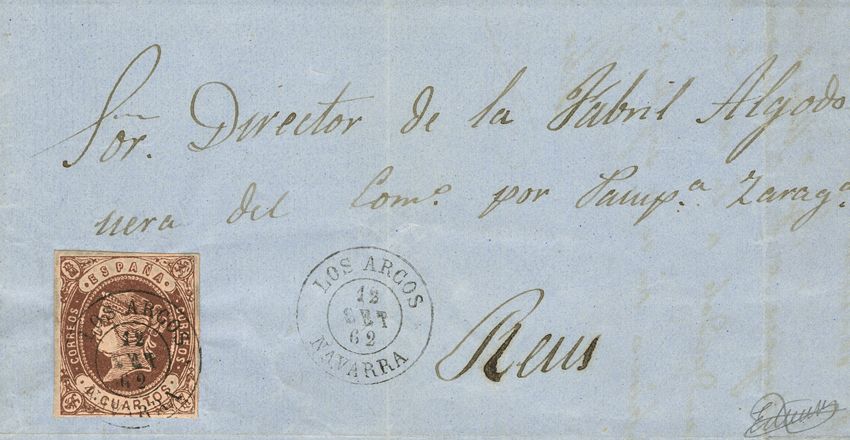 Sor. Director de la Fabril Algodo
nera del Com.º por Pamp.ª Zarag.ª
ESPAÑA
CORREOS
CORREOS
4 CUARTOS
LOS ARCOS
12
SET
62
LOS ARCOS
12
SET
62
NAVARRA
Reus